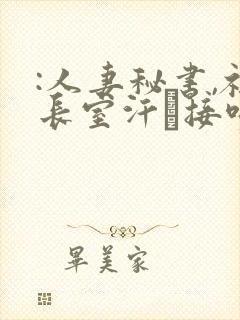 :人妻秘书,社
长室汗�接吻
畢美家